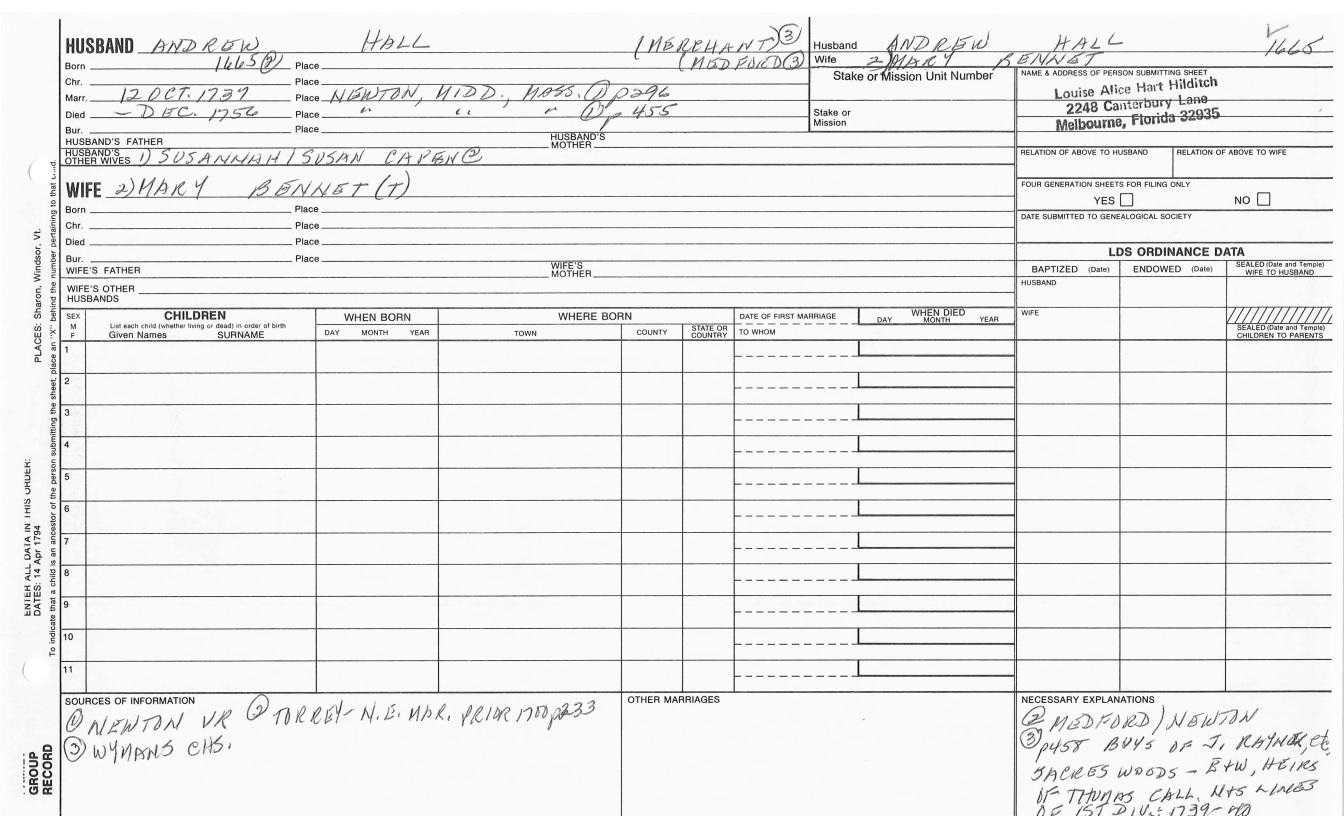 HUSBAND ANDREW HALL (MERCHANT) ③
Born 1665 ② Place (MEDFORD ③
Chr. Place
Marr. 12 OCT. 1737 Place NEWTON, MIDD., MASS. ① p296
Died – DEC. 1756 Place " " " ① p 455
Bur. Place
HUSBAND'S FATHER HUSBAND'S MOTHER
HUSBAND'S OTHER WIVES 1) SUSANNAH/SUSAN CAPEN ②
WIFE 2) MARY BENNET(T)
Born Place
Chr. Place
Died Place
Bur. Place
WIFE'S FATHER WIFE'S MOTHER
WIFE'S OTHER HUSBANDS
Husband ANDREW HALL 1665
Wife 2) MARY BENNET
Stake or Mission Unit Number
Stake or Mission
NAME & ADDRESS OF PERSON SUBMITTING SHEET
Louise Alice Hart Hilditch
2248 Canterbury Lane
Melbourne, Florida 32935
RELATION OF ABOVE TO HUSBAND RELATION OF ABOVE TO WIFE
FOUR GENERATION SHEETS FOR FILING ONLY
YES NO
DATE SUBMITTED TO GENEALOGICAL SOCIETY
LDS ORDINANCE DATA
BAPTIZED (Date) ENDOWED (Date) SEALED (Date and Temple) WIFE TO HUSBAND
HUSBAND
WIFE
SEALED (Date and Temple) CHILDREN TO PARENTS
SEX M F
CHILDREN
List each child (whether living or dead) in order of birth
Given Names SURNAME
WHEN BORN
DAY MONTH YEAR
WHERE BORN
TOWN COUNTY STATE OR COUNTRY
DATE OF FIRST MARRIAGE
TO WHOM
WHEN DIED
DAY MONTH YEAR
1
2
3
4
5
6
7
8
9
10
11
SOURCES OF INFORMATION
① NEWTON VR ② TORREY- N.E. MAR. PRIOR 1700 p233
③ WYMANS CHS.
OTHER MARRIAGES
NECESSARY EXPLANATIONS
② MEDFORD/NEWTON
③ p458 BUYS OF J. RAYNER, etc.
5 ACRES WOODS – E+W, HEIRS
OF THOMAS CALL, N+S LINES
OF 1ST DIV.: 1739-40
ENTER ALL DATA IN THIS ORDER:
DATES: 14 Apr 1794 PLACES: Sharon, Windsor, Vt.
To indicate that a child is an ancestor of the person submitting the sheet, place an "X" behind the number pertaining to that
GROUP
RECORD